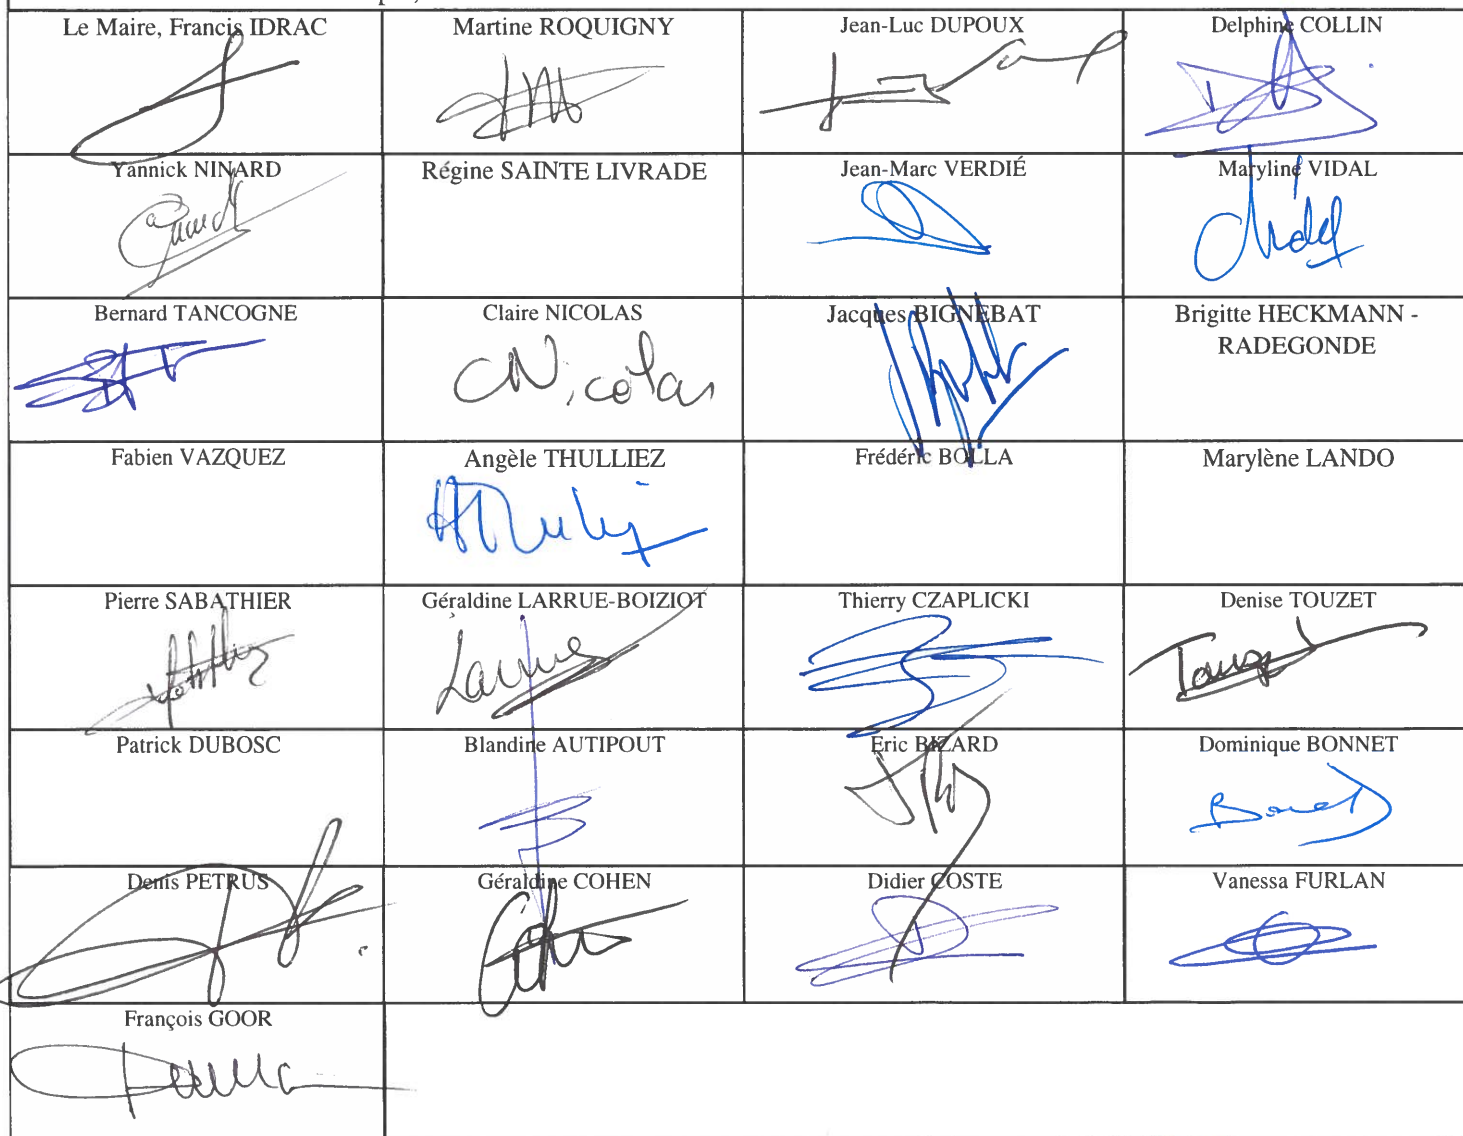 Le Maire, Francis IDRAC
Martine ROQUIGNY
Jean-Luc DUPOUX
Delphine COLLIN
Yannick NINARD
Régine SAINTE LIVRADE
Jean-Marc VERDIÉ
Maryline VIDAL
Vidal
Bernard TANCOGNE
Claire NICOLAS
CNicolas
Jacques BIGNEBAT
Brigitte HECKMANN -
RADEGONDE
Fabien VAZQUEZ
Angèle THULLIEZ
Frédéric BOLLA
Marylène LANDO
Pierre SABATHIER
Géraldine LARRUE-BOIZIOT
Larrue
Thierry CZAPLICKI
Denise TOUZET
Patrick DUBOSC
Blandine AUTIPOUT
Eric BIZARD
Dominique BONNET
Denis PETRUS
Géraldine COHEN
Didier COSTE
Vanessa FURLAN
François GOOR